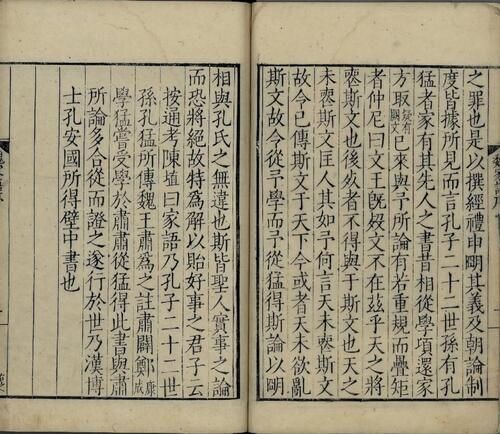 之罪也是以撰經禮申明其義及朝論制
度皆據所見而言孔子二十二世孫有孔
猛者家有其先人之書昔相從學項還家
方取疑有闕文已來與予所論有若重規而疊矩
者仲尼曰文王既歿文不在茲乎天之將
喪斯文也後死者不得與于斯文也天之
未喪斯文匡人其如予何言天未喪斯文
故今已傳斯文于天下今或者天未欲亂
斯文故令從予學而予從猛得斯論以明
相與孔氏之無違也斯皆聖人實事之論
而恐將絕故特為解以貽好事之君子云
按通考陳埴曰家語乃孔子二十二世
孫孔猛所傳魏王肅為之註肅闢鄭康成
學猛嘗受學於肅肅從猛得此書與肅
所論多合從而證之遂行於世乃漢博
士孔安國所得壁中書也